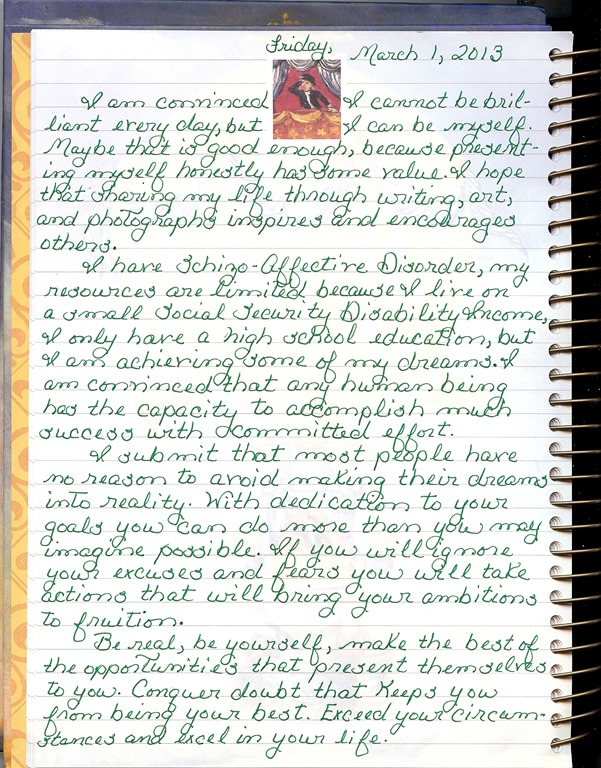 Friday, March 1, 2013
I am convinced I cannot be bril-
liant every day, but I can be myself.
Maybe that is good enough, because present-
ing myself honestly has some value. I hope
that sharing my life through writing, art,
and photographs inspires and encourages
others.
I have Schizo-Affective Disorder, my
resources are limited because I live on
a small Social Security Disability Income,
I only have a high school education, but
I am achieving some of my dreams. I
am convinced that any human being
has the capacity to accomplish much
success with committed effort.
I submit that most people have
no reason to avoid making their dreams
into reality. With dedication to your
goals you can do more than you may
imagine possible. If you will ignore
your excuses and fears you will take
actions that will bring your ambitions
to fruition.
Be real, be yourself, make the best of
the opportunities that present themselves
to you. Conquer doubt that keeps you
from being your best. Exceed your circum-
stances and excel in your life.